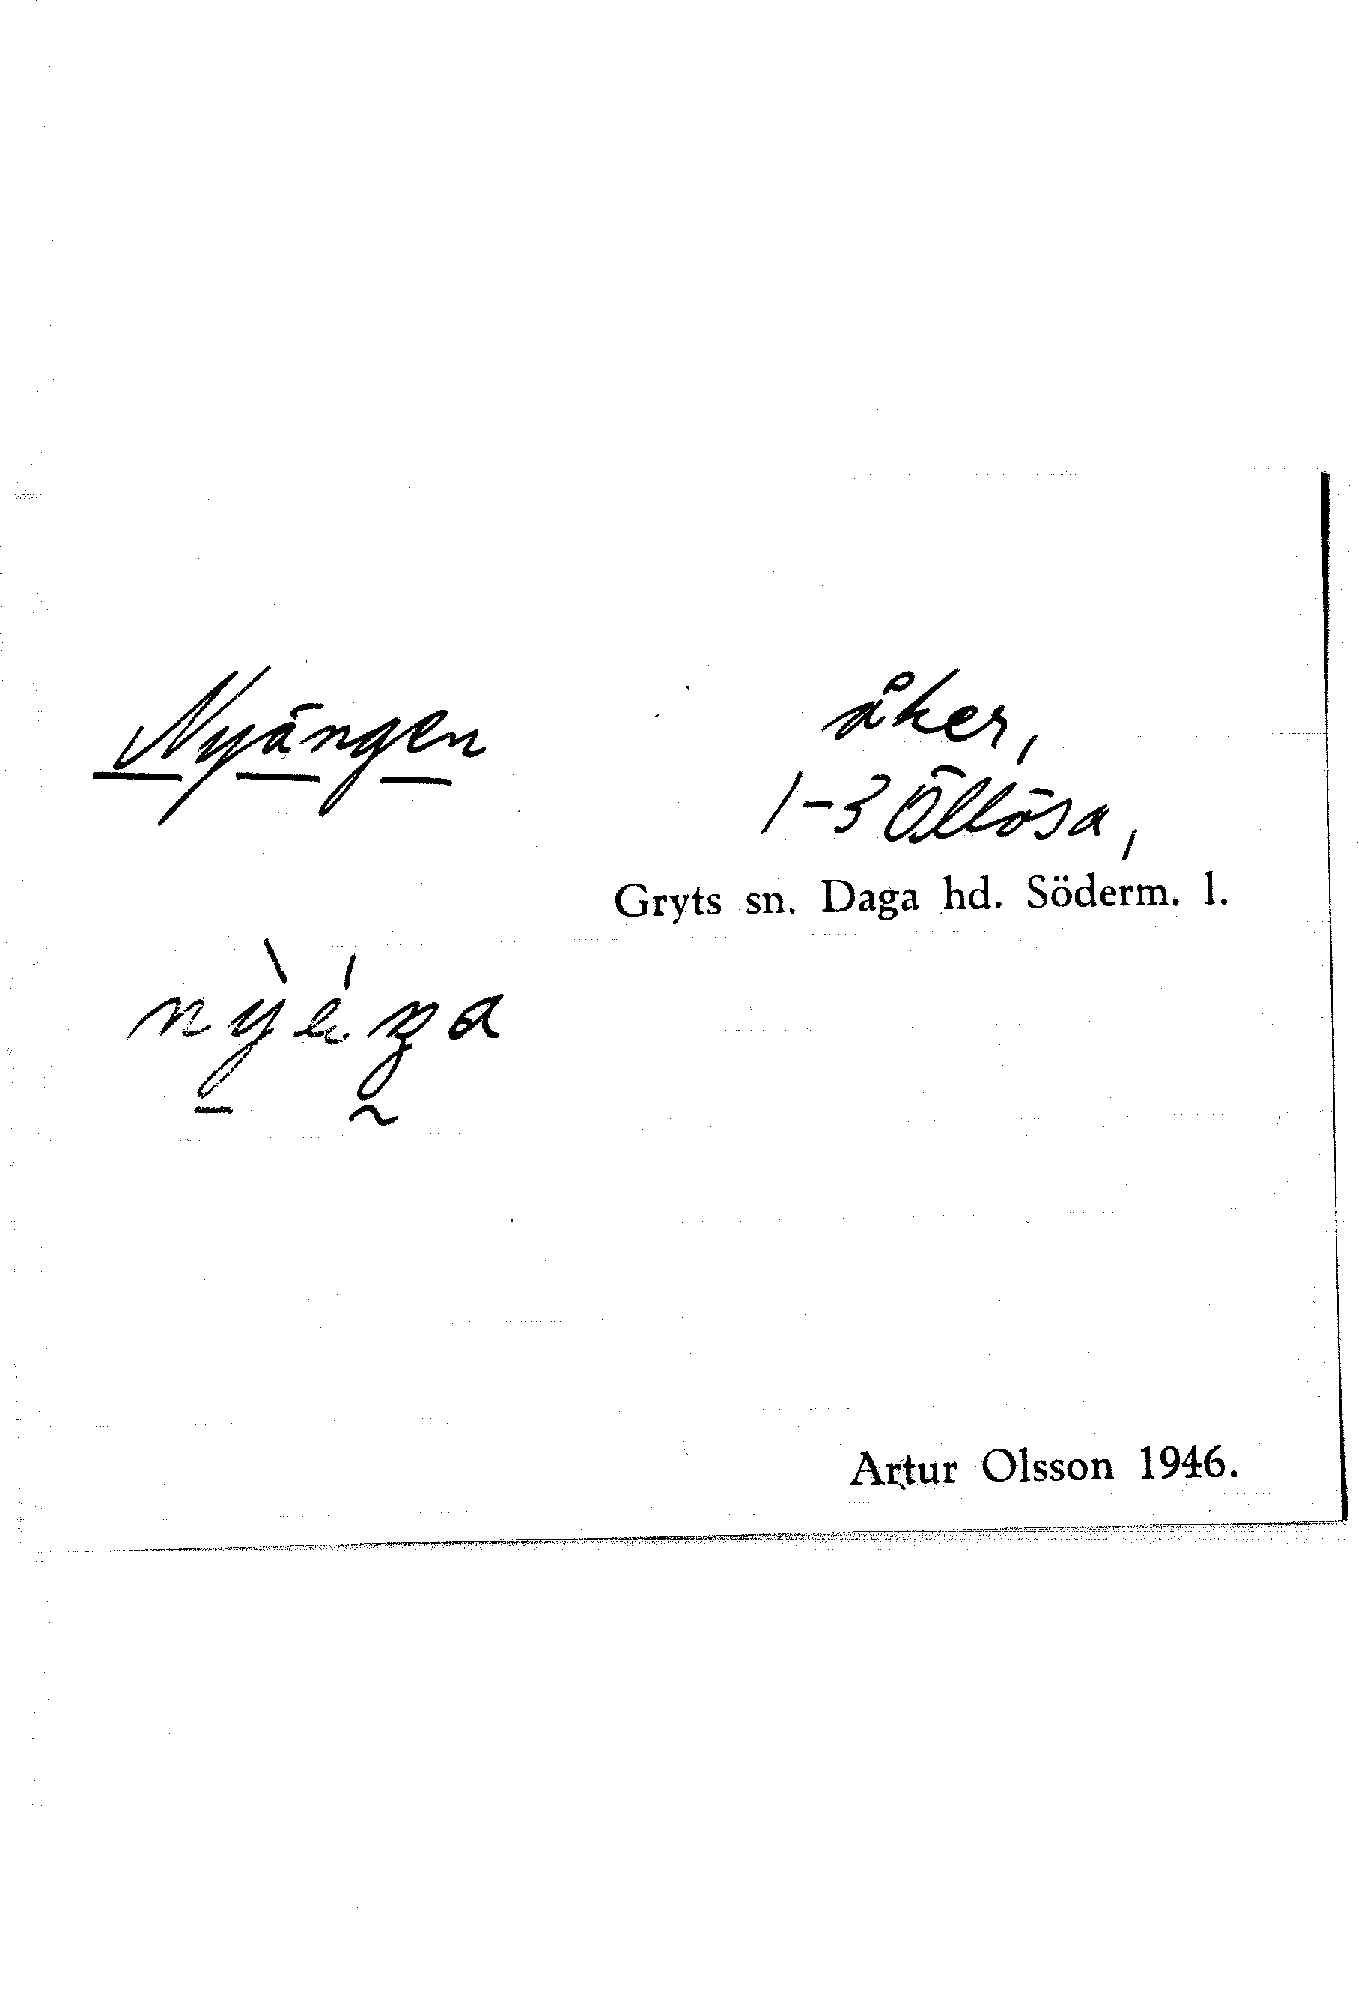 Nyängen
åker,
1-3 Öllösa,
Gryts sn. Daga hd. Söderm. l.
Artur Olsson 1946.